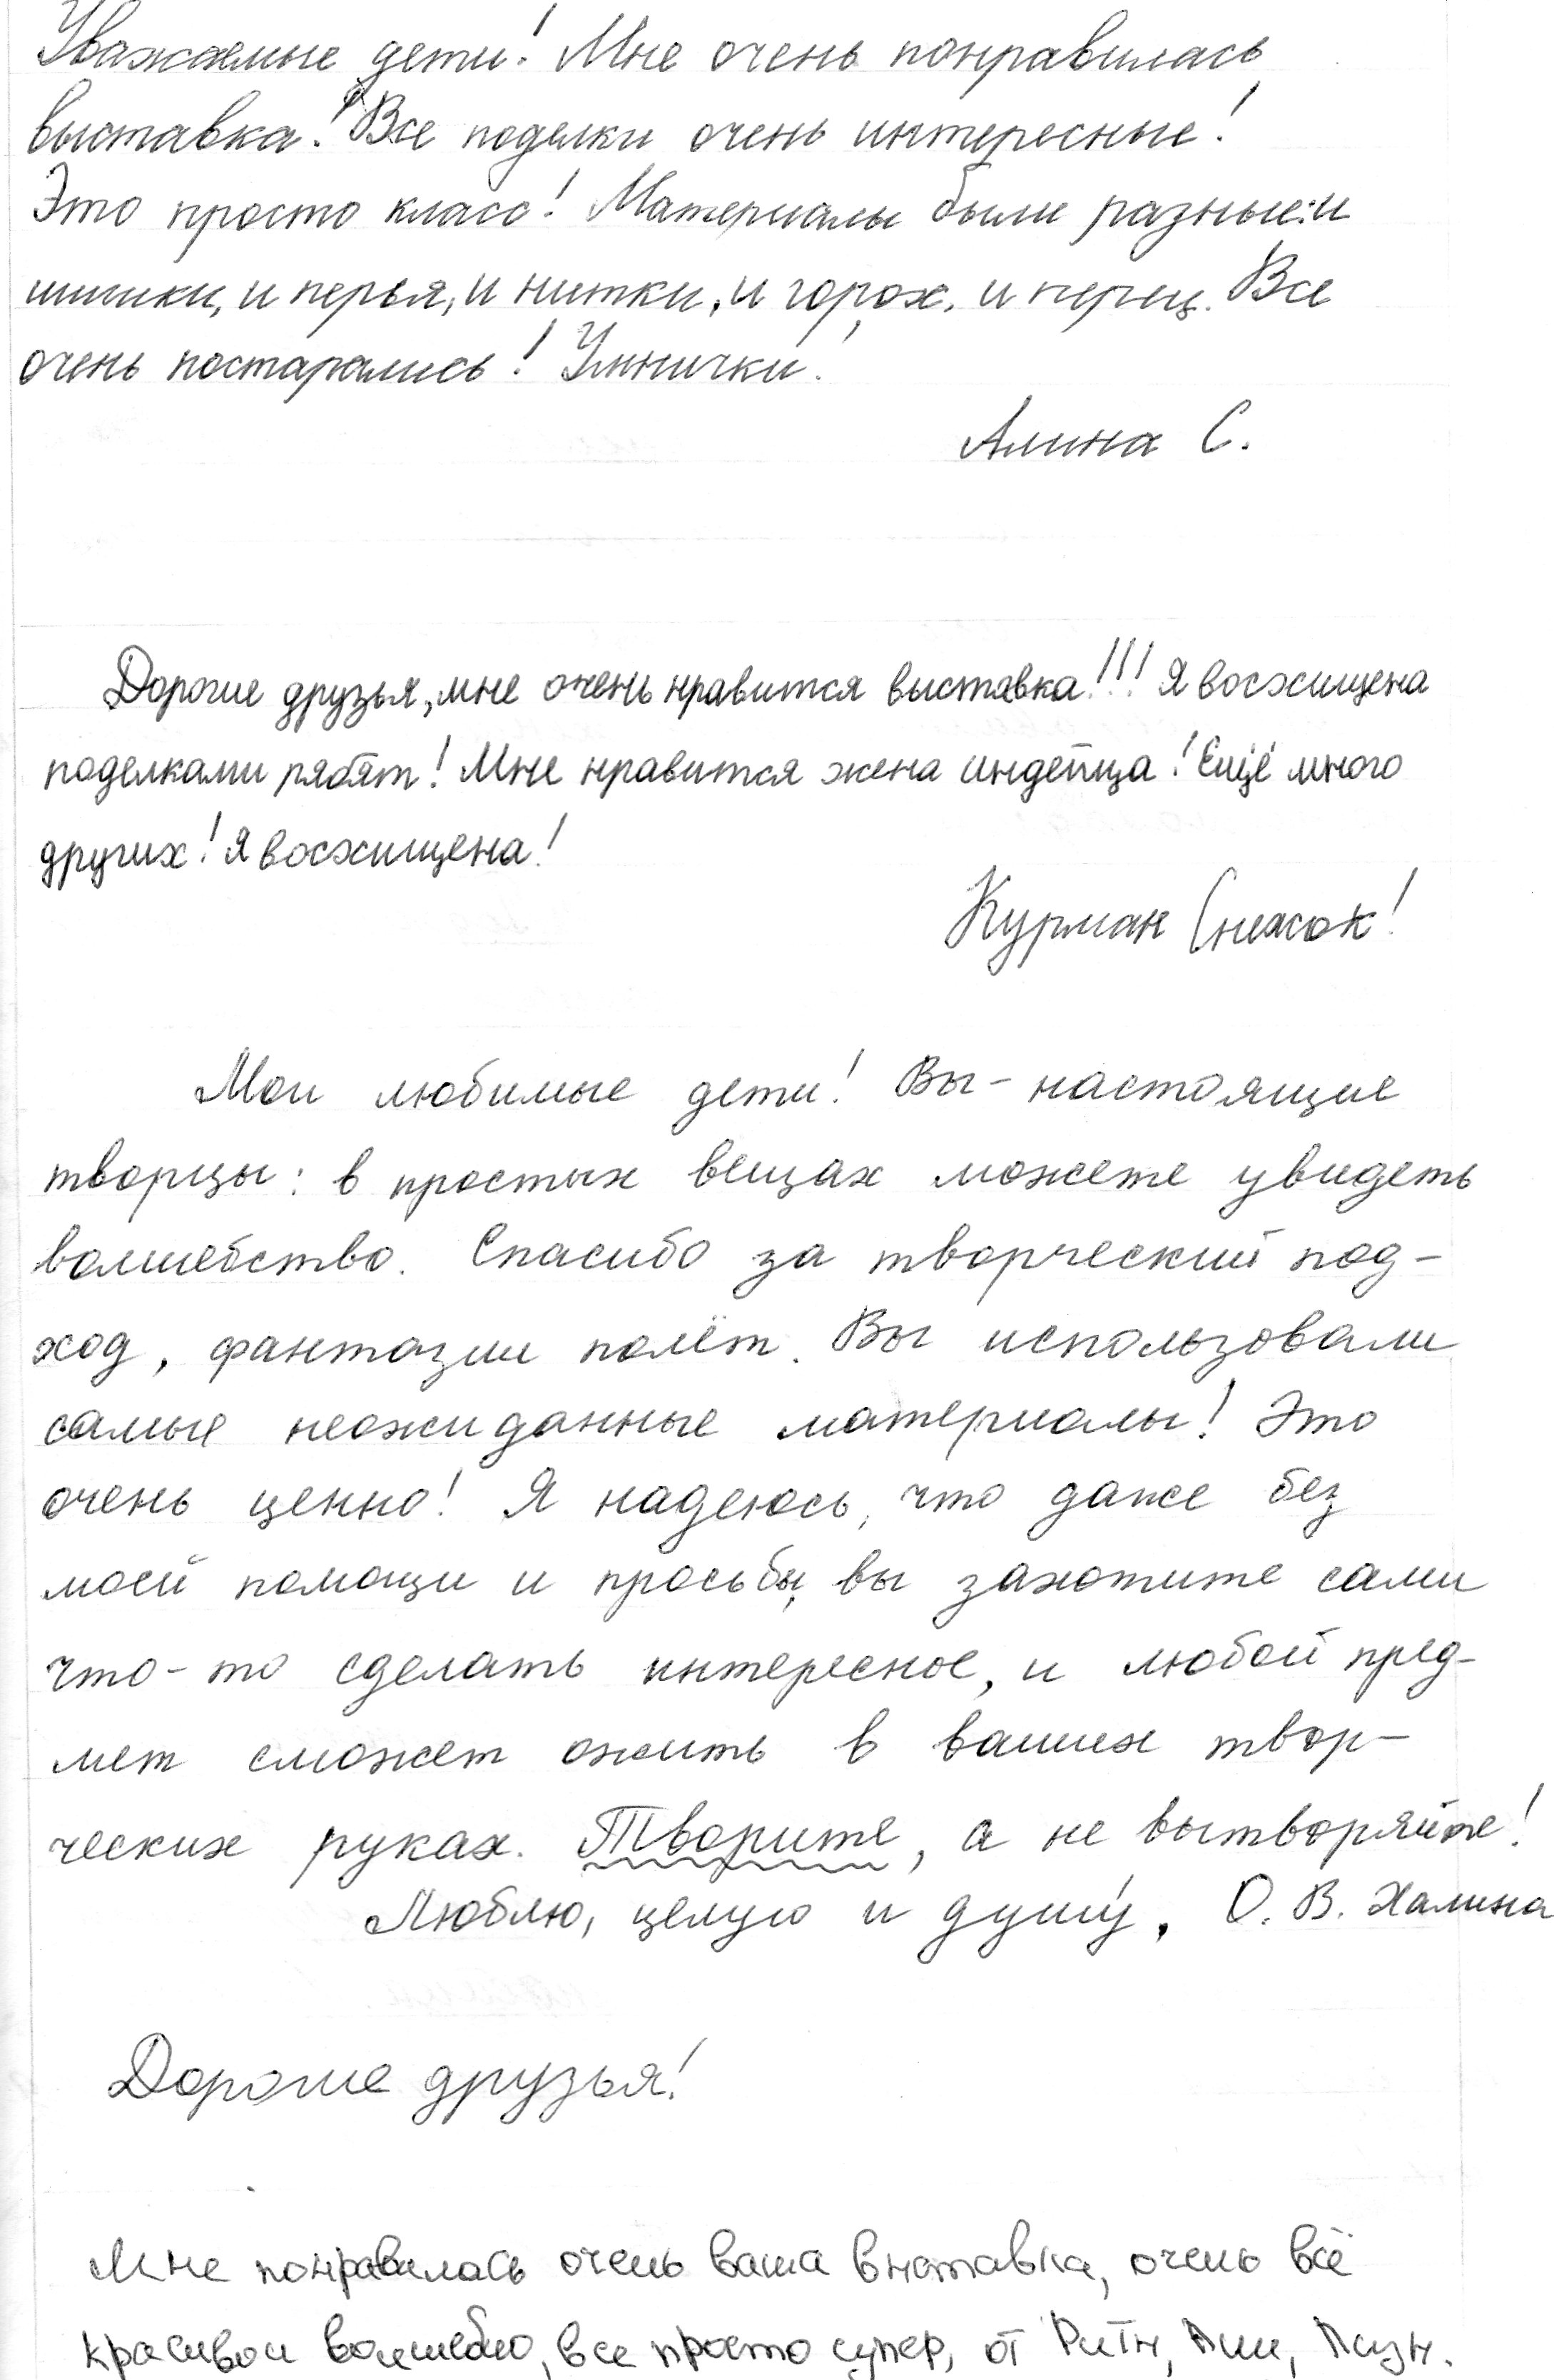 Уважаемые дети! Мне очень понравилась
выставка! Все поделки очень интересные!
Это просто класс! Материалы были разные: и
шишки, и перья, и нитки, и горох, и перец. Все
очень постарались! Умнички!
Алина С.
Дорогие друзья, мне очень нравится выставка!!! Я восхищена
поделками рябят! Мне нравится жена индейца! Ещё много
других! Я восхищена!
Курман Снежок!
Мои любимые дети! Вы - настоящие
творцы: в простых вещах можете увидеть
волшебство. Спасибо за творческий под-
ход, фантазии полёт. Вы использовали
самые неожиданные материалы! Это
очень ценно! Я надеюсь, что даже без
моей помощи и просьбы, вы захотите сами
что-то сделать интересное, и любой пред-
мет сможет ожить в ваших твор-
ческих руках. Творите, а не вытворяйте!
Люблю, целую и душу́, О. В. Халина
Дорогие друзья!
Мне понравилась очень ваша выставка, очень всё
красивои волшебно, все просто супер, от Риты,